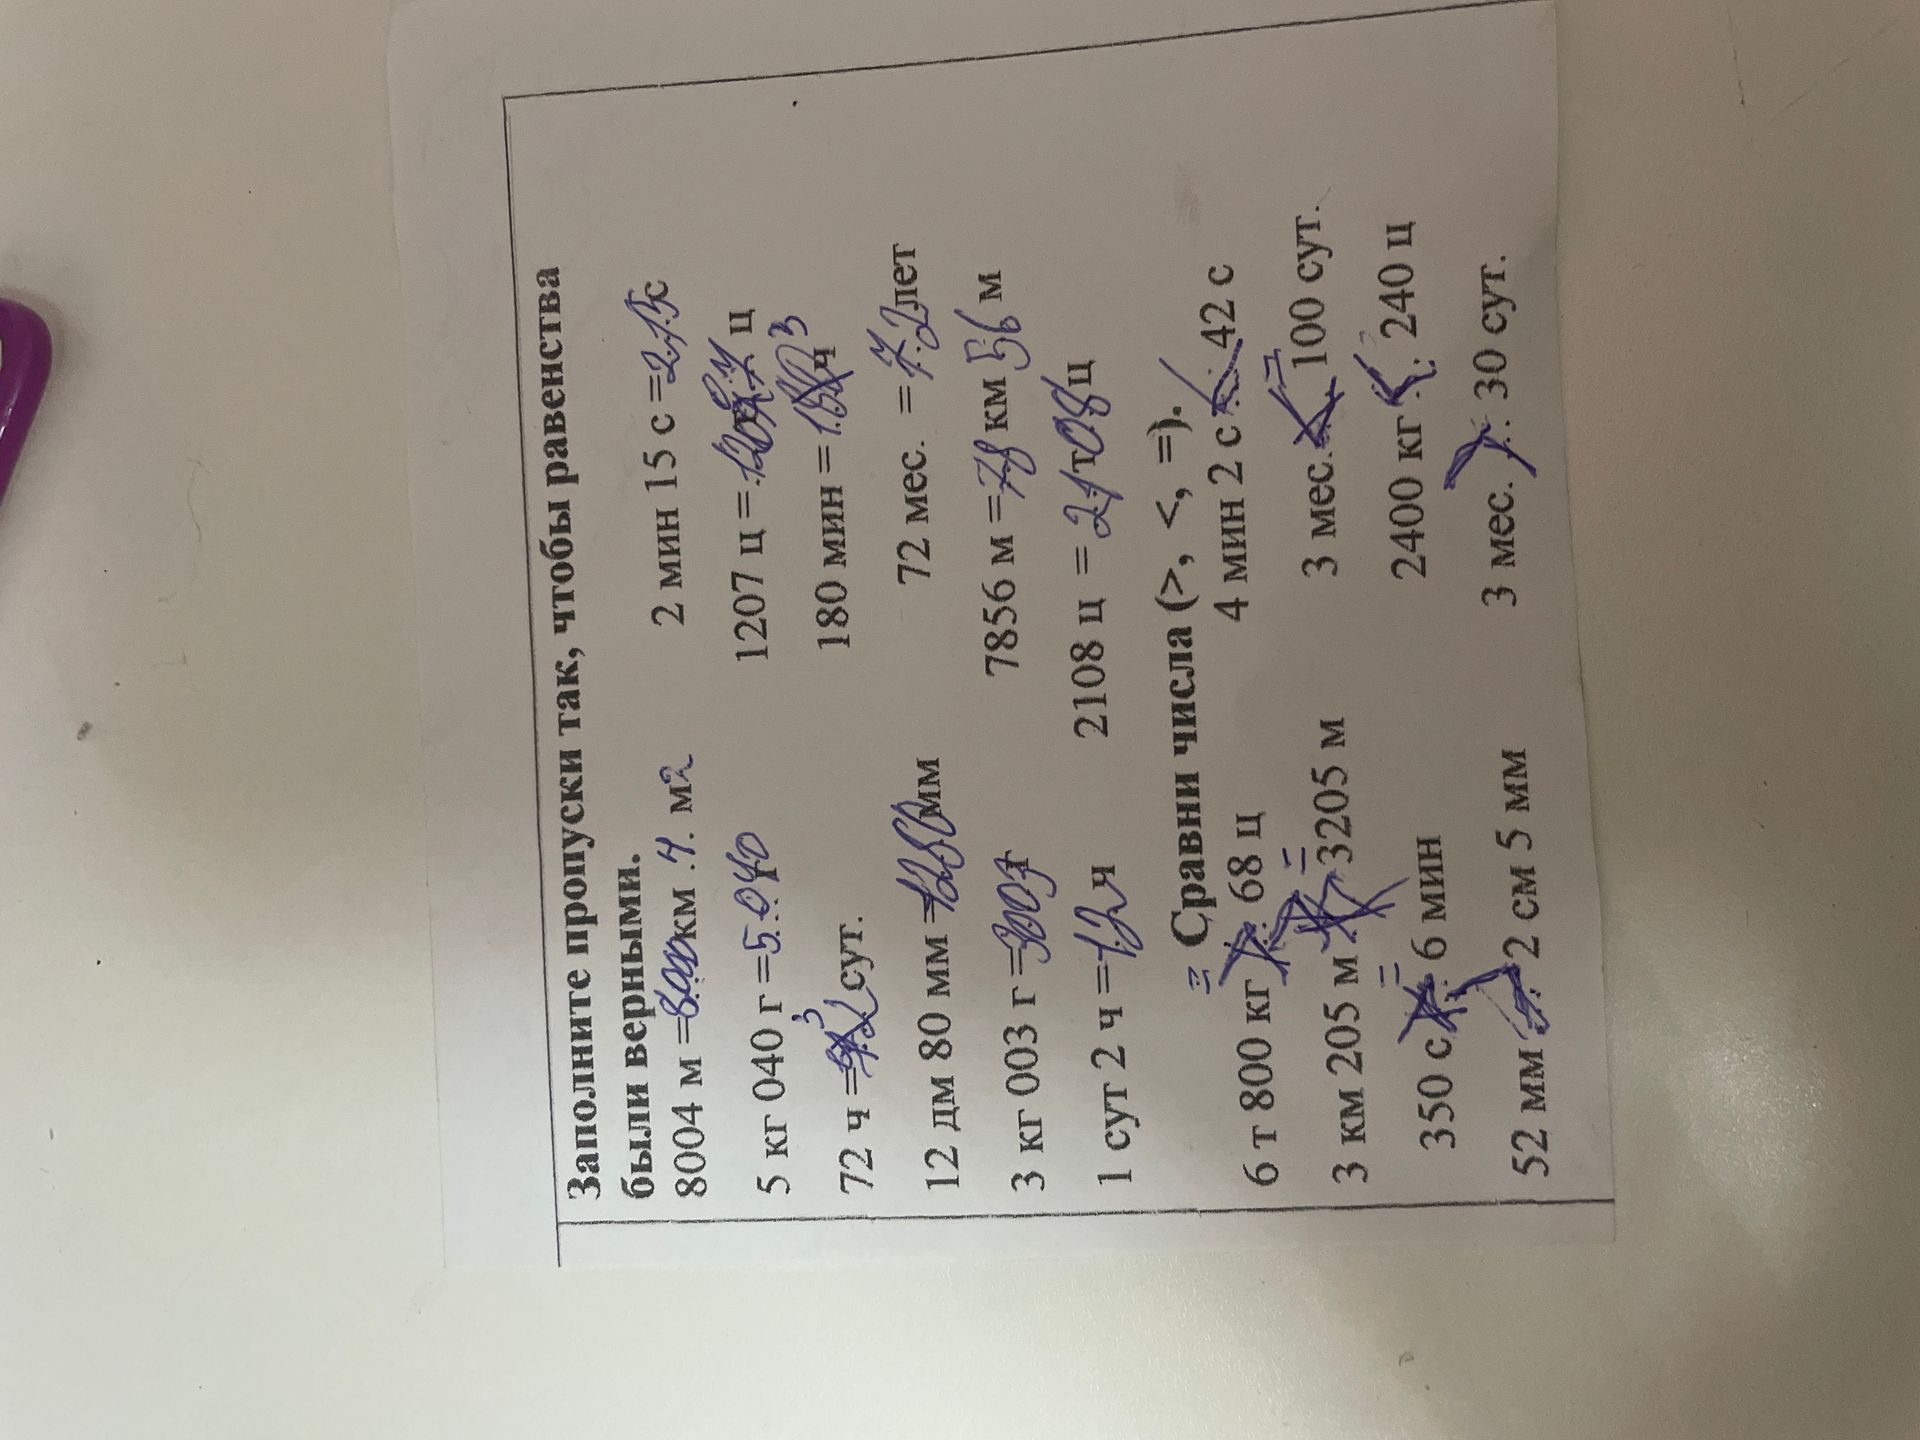 Заполните пропуски так, чтобы равенства
были верными.
8004 м = 8000 км 4 м 2 2 мин 15 с = 215 с
5 кг 040 г = 5.040 1207 ц = ц
72 ч = 3 сут. 180 мин = 3 ч
12 дм 80 мм = 1280 мм 72 мес. = 72 лет
3 кг 003 г = 3003 г 7856 м = 78 км 56 м
1 сут 2 ч = 12 ч 2108 ц = 21 т 08 ц
Сравни числа (>, <, =).
6 т 800 кг = 68 ц 4 мин 2 с < 42 с
3 км 205 м = 3205 м 3 мес. = 100 сут.
350 с = 6 мин 2400 кг < 240 ц
52 мм > 2 см 5 мм 3 мес. > 30 сут.